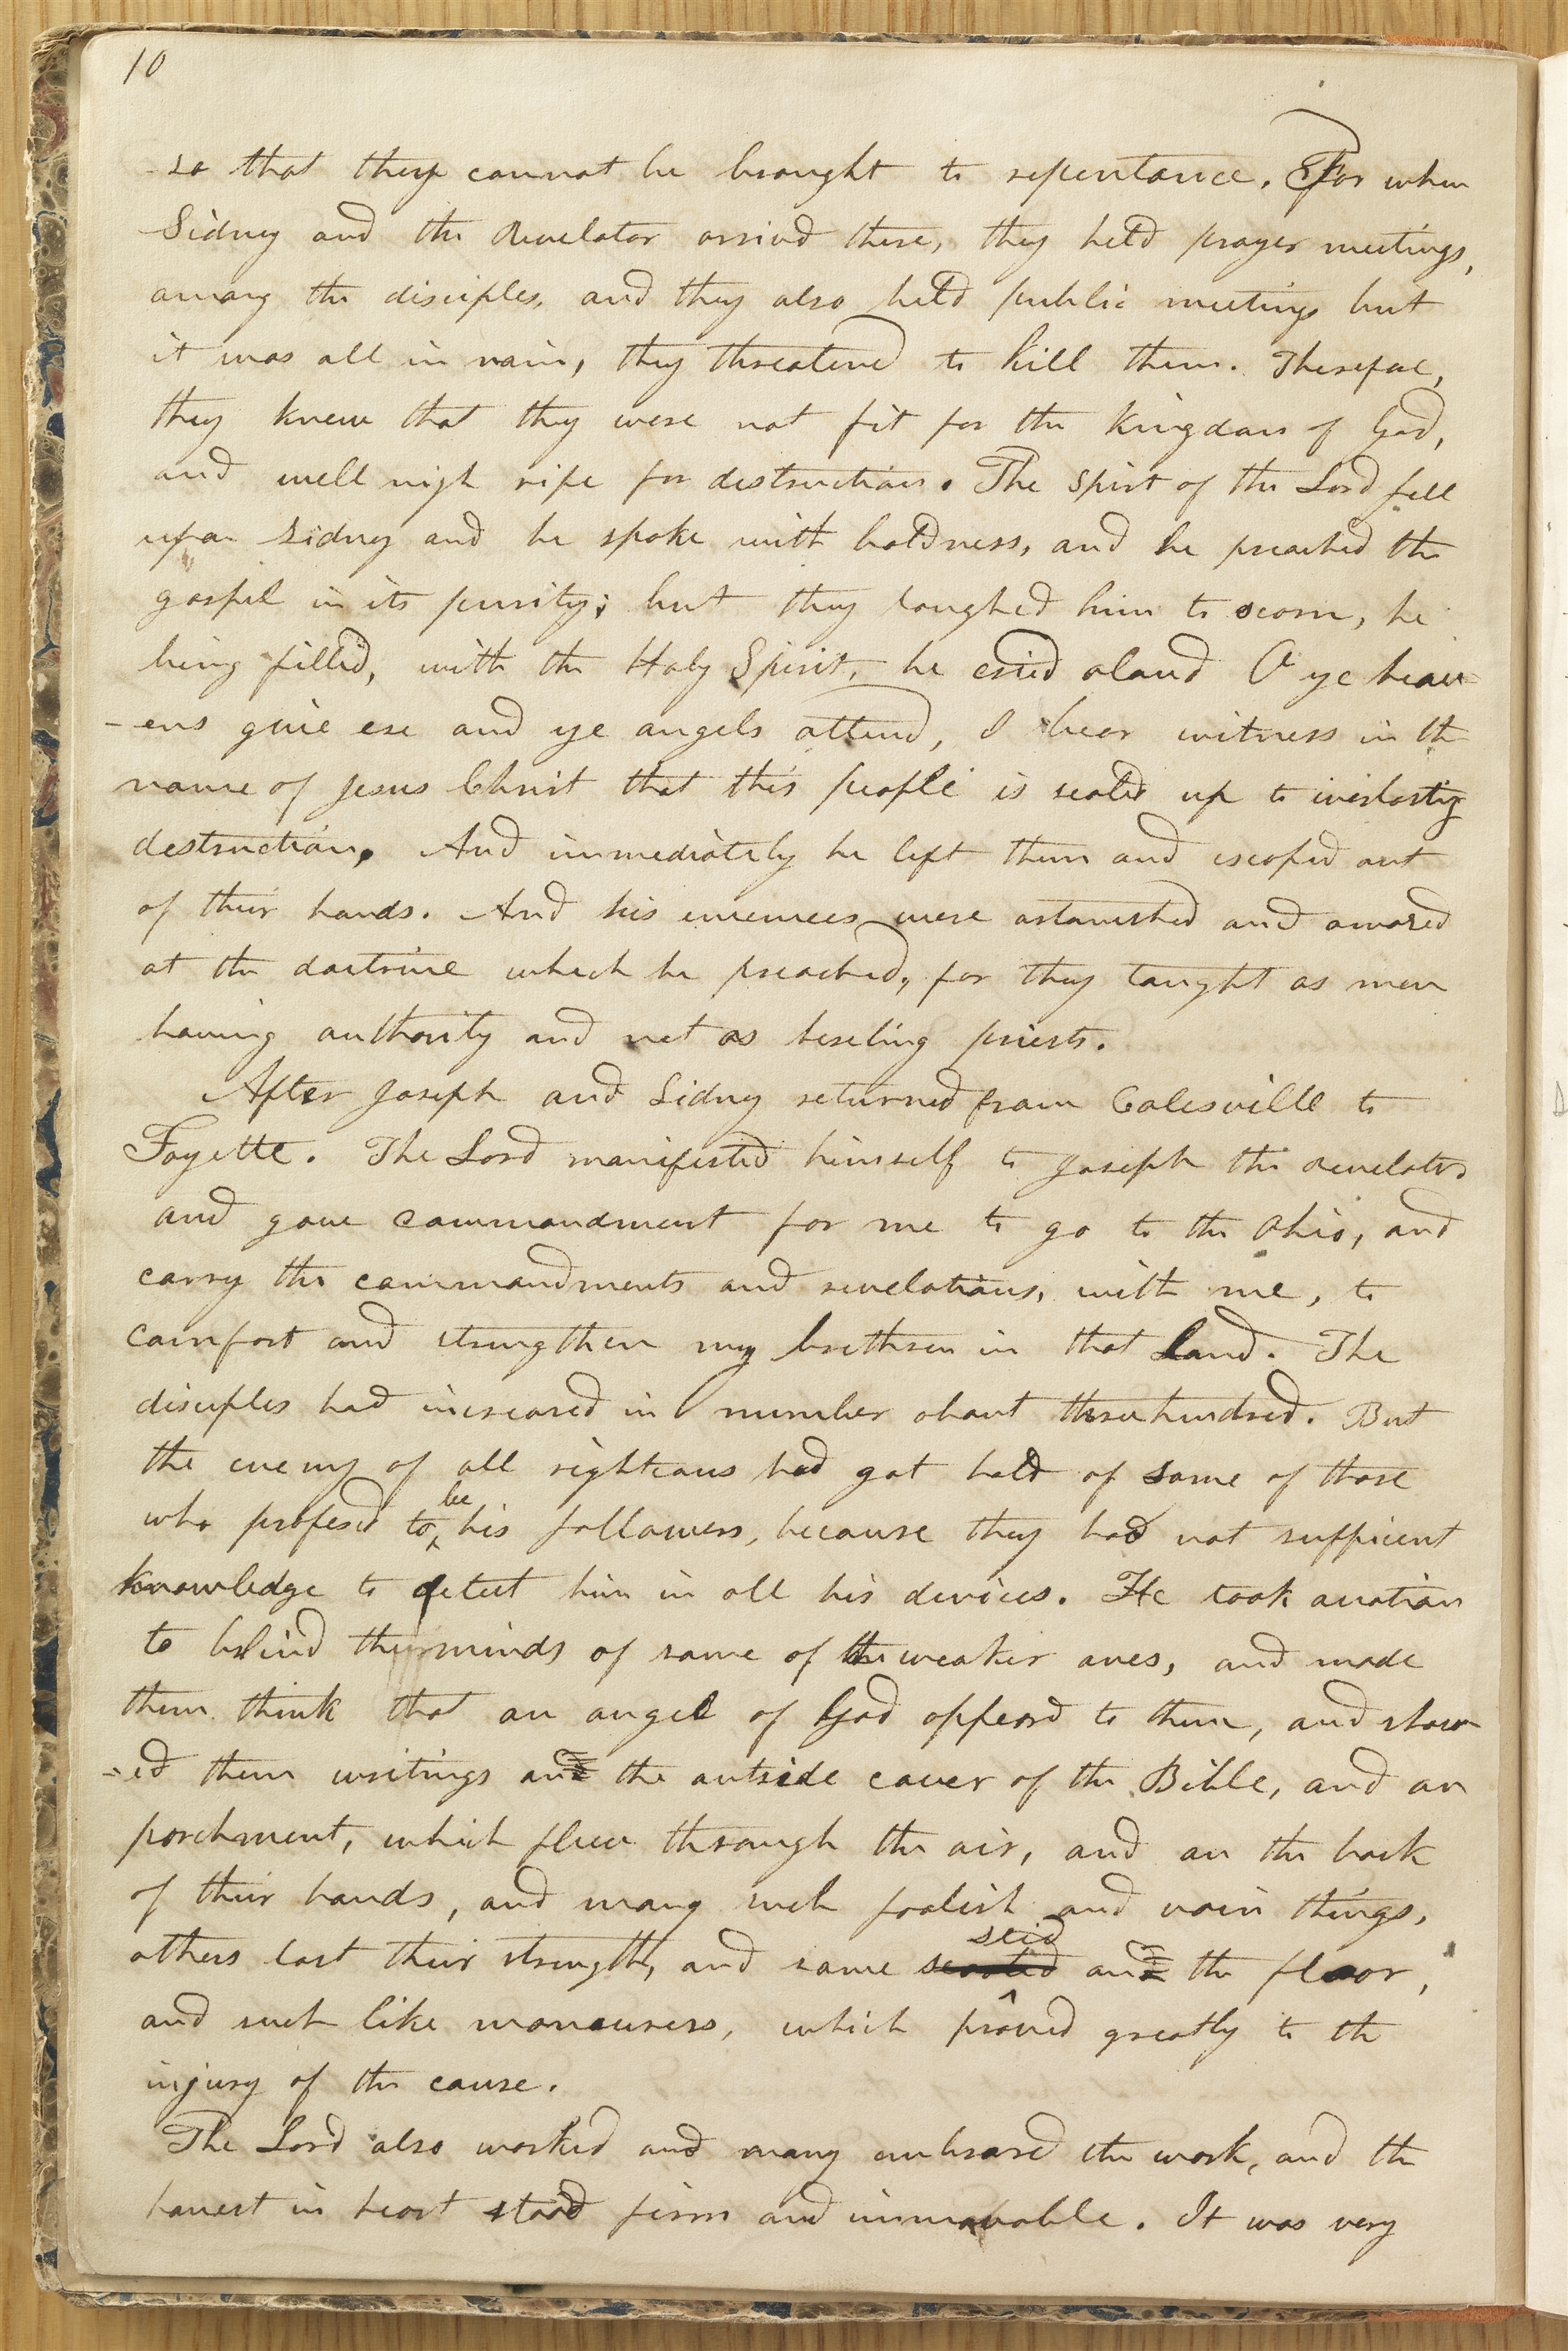 10
so that they cannot be brought to repentance. For when
Sidney and the Revelator arrived there, they held prayer meetings,
among the disciples, and they also held public meetings but
it was all in vain, they threatened to kill them. Therefore,
they knew that they were not fit for the kingdom of God,
and well nigh ripe for destruction. The Spirt of the Lord fell
upon Sidney and he spoke with boldness, and he preached the
gospel in its purity; but they laughed him to scorn, he
being filled, with the Holy Spirit, he cried aloud O ye heav-
-ens give ere and ye angels attend, I bear witness in the
name of Jesus Christ that this people is sealed up to everlasting
destruction. And immediately he left them and escaped out
of their hands. And his enemees were astonished and amazed
at the doctrine which he preached, for they taught as men
having authority and not as hireling priests.
After Joseph and Sidney returned from Colesville to
Fayette. The Lord manifested himself to Joseph the Revelator
and gave commandment for me to go to the Ohio, and
carry the commandments and revelations, with me, to
comfort and strengthen my brethren in that land. The
disciples had increased in number about three hundred. But
the enemy of all righteous had got hold of some of those
who profesed to be his followers, because they had not sufficient
knowledge to detect him in all his devices. He took a notion
to blind the minds of some of the weaker ones, and made
them think that an angel of God appeard to them, and show-
-ed them writings on the outside cover of the Bible, and on
parchment, which flew through the air, and on the back
of their hands, and many such foolish and vain things,
others lost their strength, and some scooted slid on the floor,
and such like maneuvers, which proved greatly to the
injury of the cause.
The Lord also worked and many embraced the work, and the
honest in heart stood firm and immovable. It was very